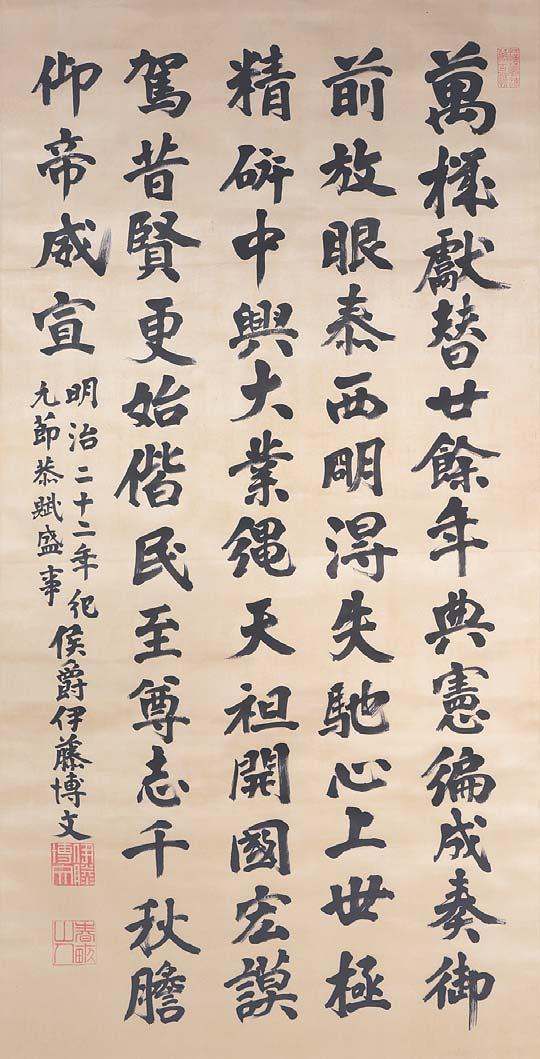 萬機獻替廿餘年典憲編成奏御
前放眼泰西明得失馳心上世極
精研中興大業繩天祖開國宏謨
駕昔賢更始偕民至尊志千秋瞻
仰帝威宣
明治二十二年紀
元節恭賦盛事
侯爵伊藤博文
伊藤博文
春畝山人